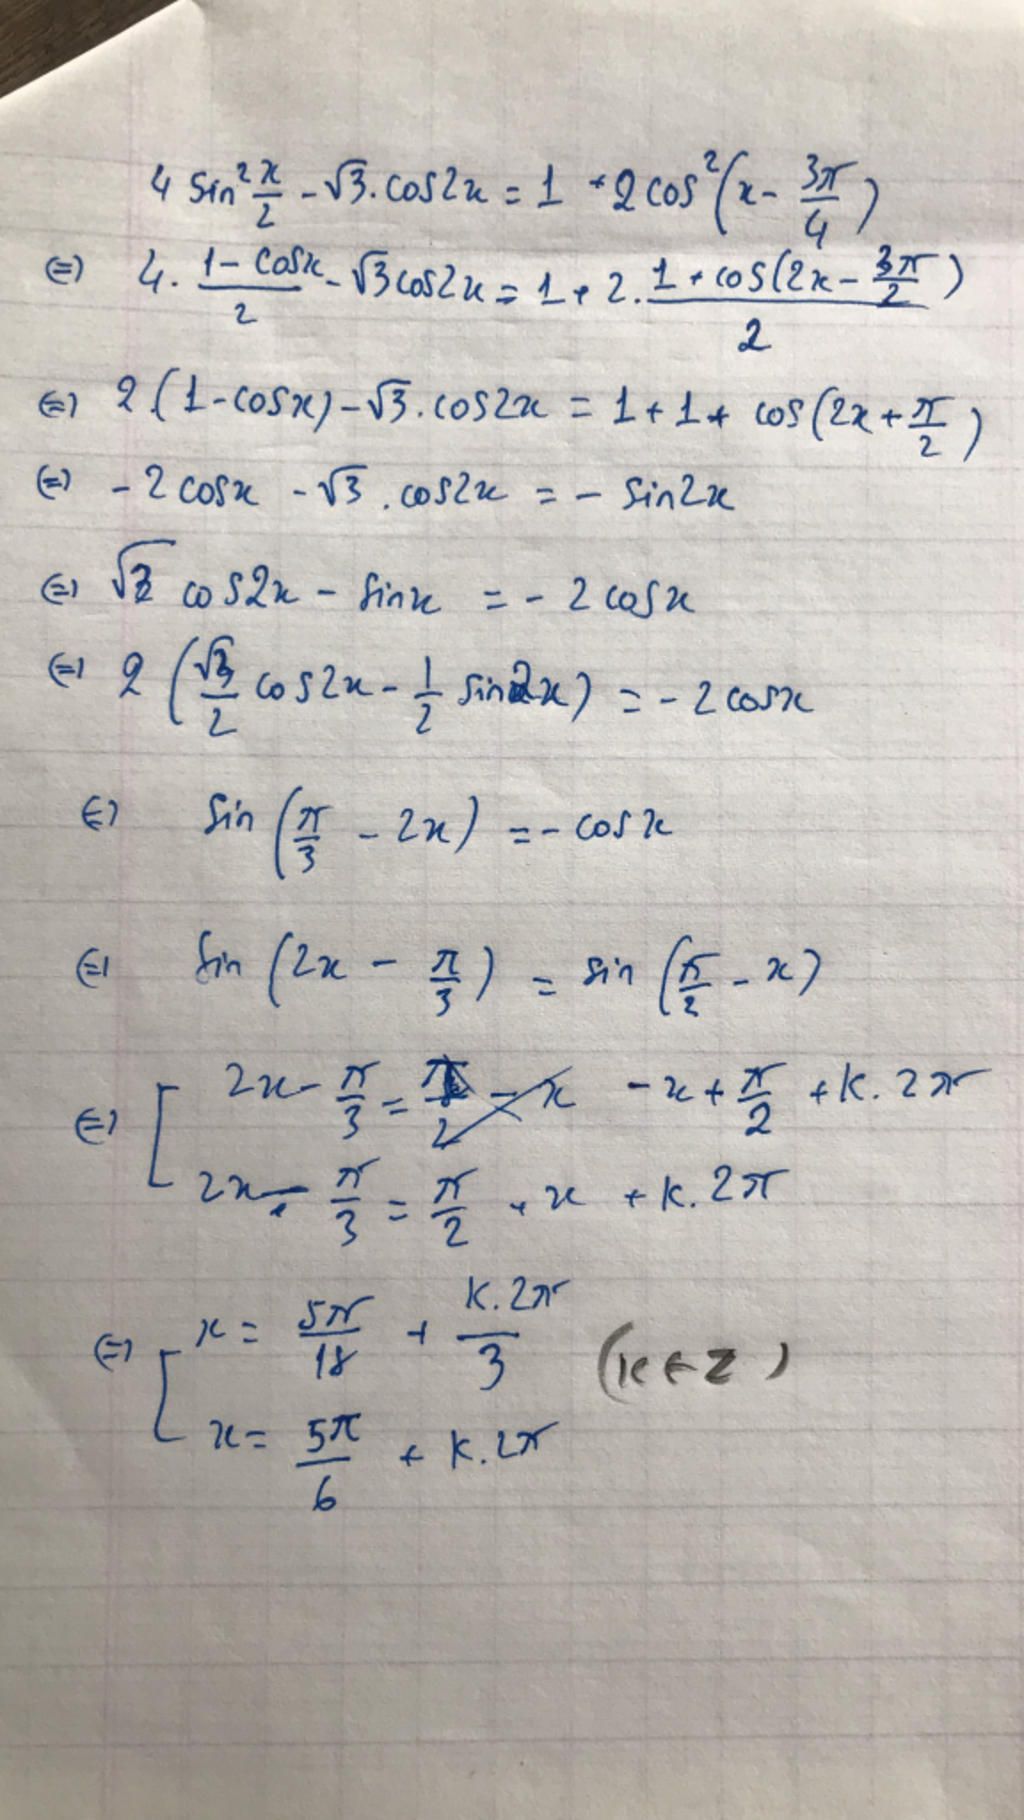 4 sin² x/2 - √3.cos2x = 1 + 2cos²(x - 3π/4)
(=) 4. (1 - cosx)/2 - √3cos2x = 1 + 2. (1 + cos(2x - 3π/2))/2
(=) 2.(1 - cosx) - √3.cos2x = 1 + 1 + cos(2x + π/2)
(=) - 2cosx - √3.cos2x = - sin2x
(=) √3 cos2x - sinx = - 2cosx
(=) 2 (√3/2 cos2x - 1/2 sin2x) = - 2cosx
(=) sin (π/3 - 2x) = - cosx
(=) sin (2x - π/3) = sin (π/2 - x)
(=) [ 2x - π/3 = - x + π/2 + k.2π
2x - π/3 = π/2 + x + k.2π
(=) [ x = 5π/18 + k.2π/3 (k ∈ Z)
x = 5π/6 + k.2π